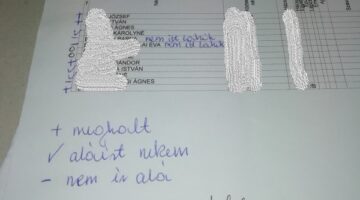 JÓZSEF
ISTVÁN
ÁGNES
KÁROLYNÉ
nem itt lakik
ÉVA nem itt lakik
SÁNDOR
ISTVÁN
ÁGNES
+ meghalt
✓ aláírt nekem
- nem ír alá